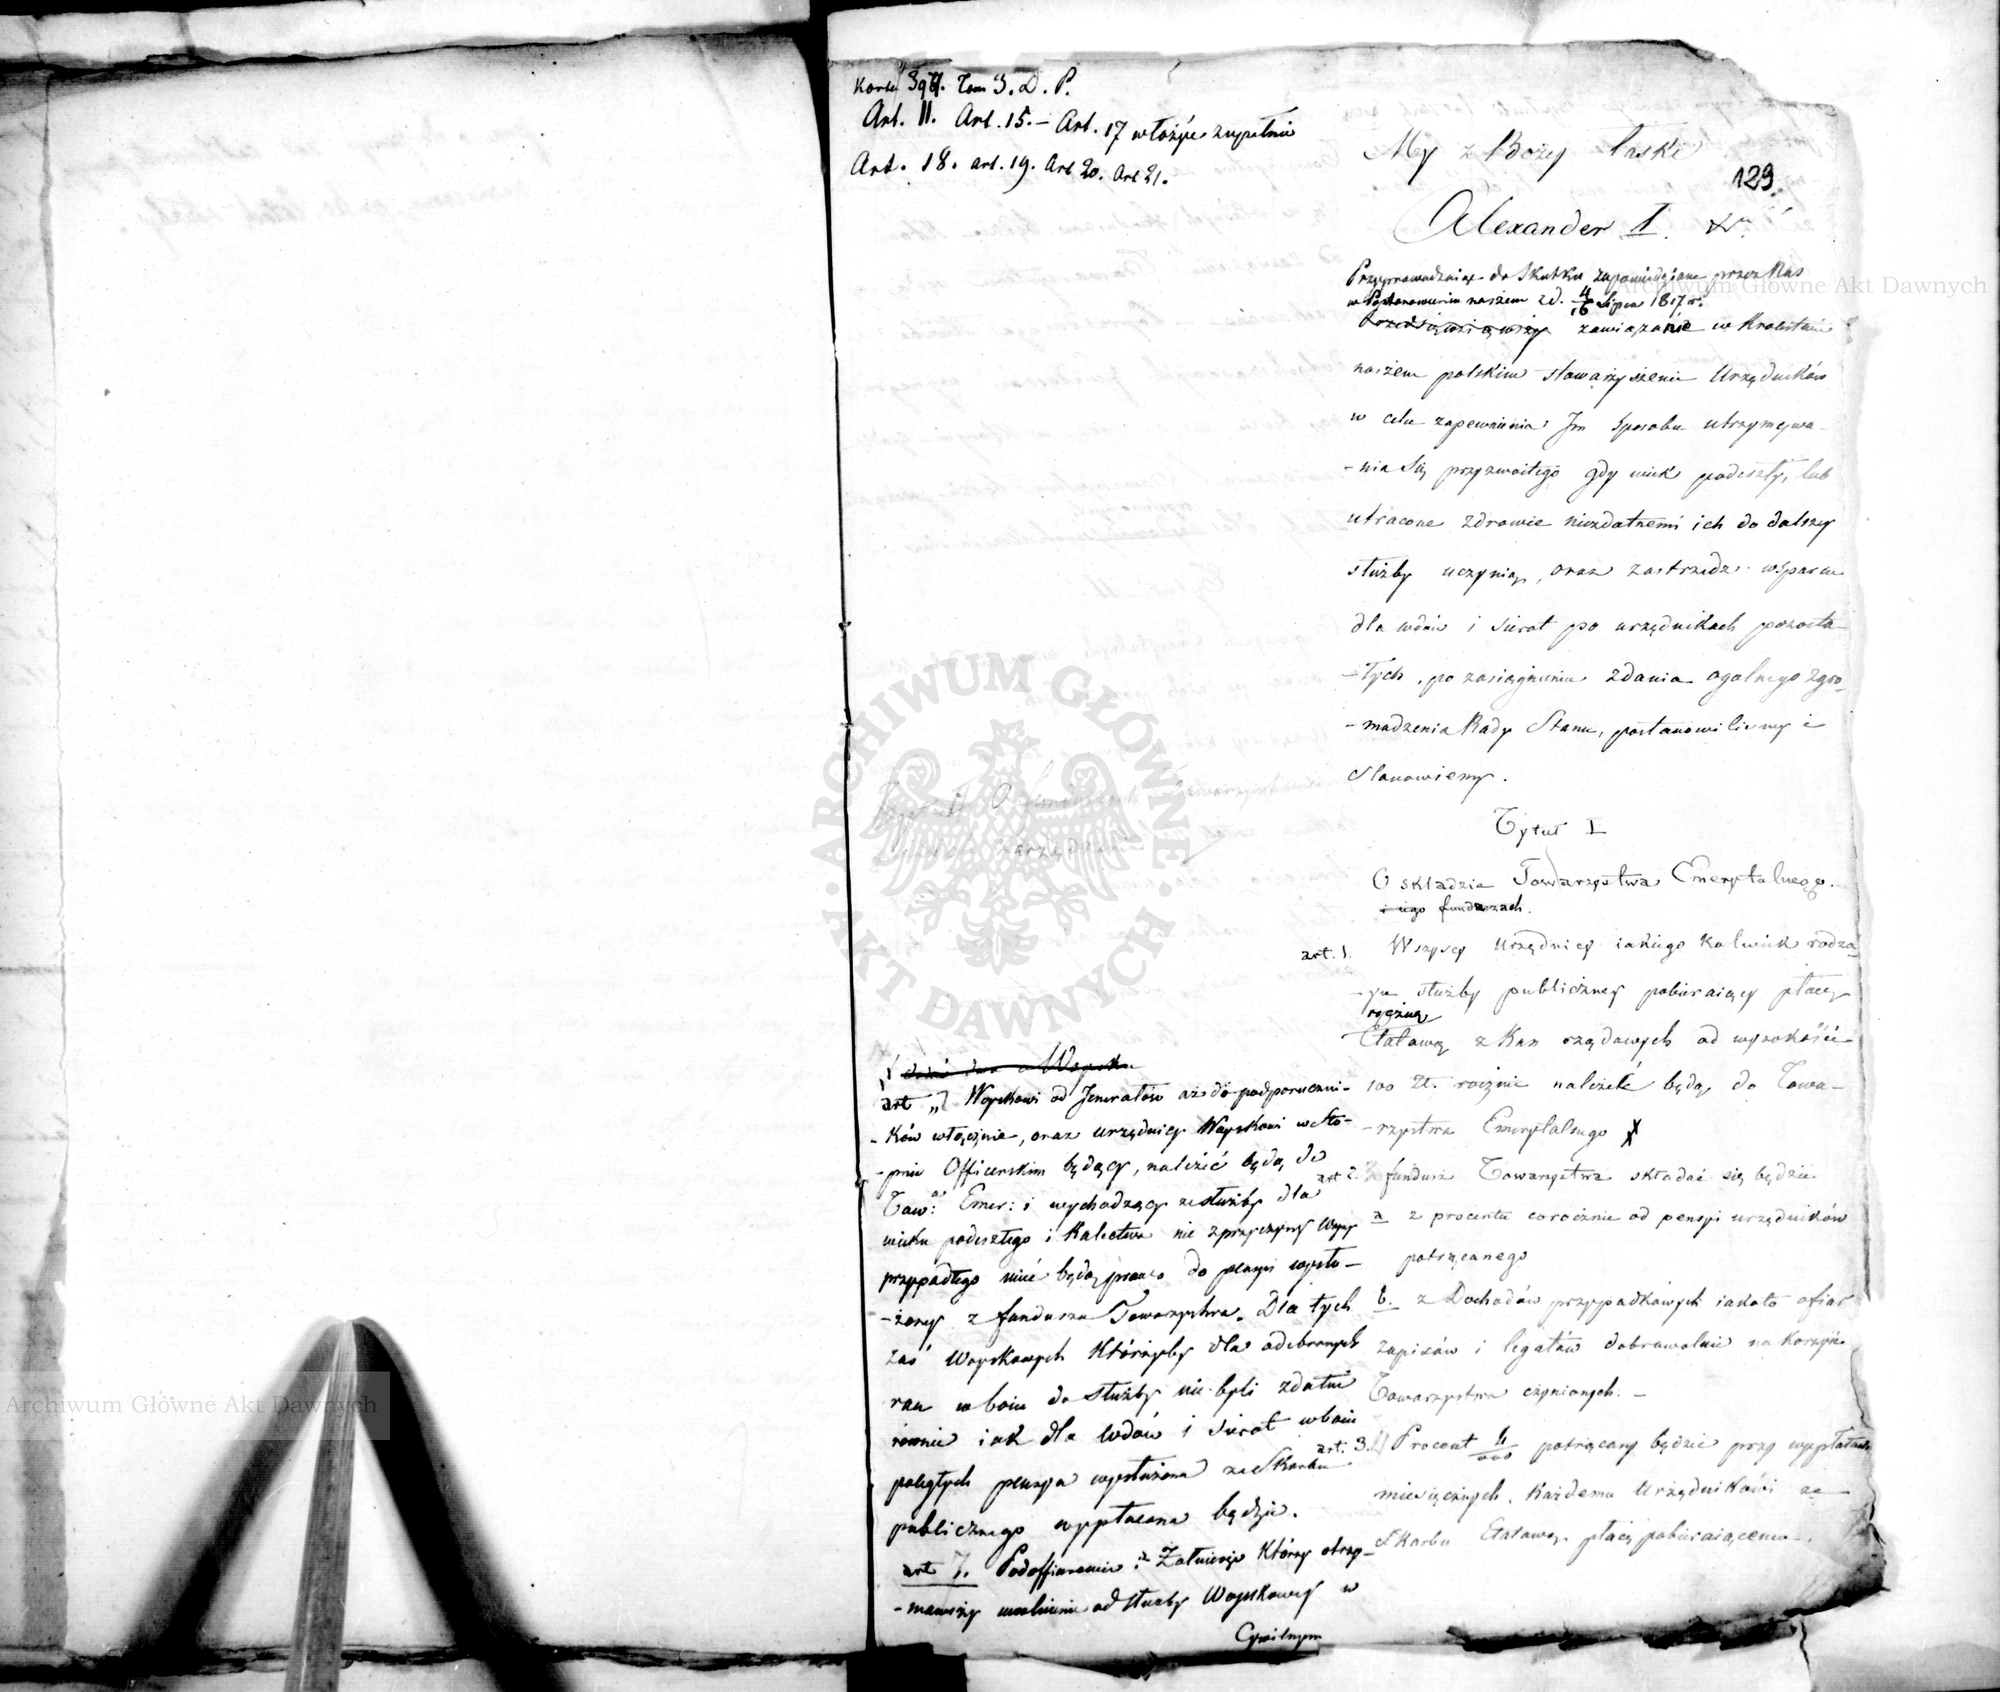 Karta 397. Tom 3. D. P.
Art. 11. Art. 15. – Art. 17 włożyć zupełnie
Art. 18. art. 19. Art 20. Art 21.
129.
My z Bożey łaski
Alexander I. &c.
Przyprowadzaiąc do Skutku zapowiedziane przez Nas
w Postanowieniu naszem z d. 4/16 Lipca 1817 r.
Przedsięwziąwszy zawiązanie w Krolestwie
naszem polskim stowarzyszenie Urzędników
w celu zapewnienia Im sposobu utrzymywa-
-nia się przyzwoitego gdy wiek podeszły, lub
utracone zdrowie niezdatnemi ich do dalszey
służby uczynią, oraz zastrzedz wsparcie
dla wdów i sierot po urzędnikach pozosta-
-łych, po zasiągnieniu zdania ogolnego zgro-
-madzenia Rady Stanu, postanowiliśmy i
Stanowiemy.
Tytuł I
O składzie Towarzystwa Emerytalnego.
i iego funduszach.
art. 1. Wszyscy urzędnicy iakiego kolwiek rodza-
-ju służby publiczney pobieraiący płacę
roczną
Etatową z Kass rządowych od wysokości
100 Zł. rocznie należeć będą do Towa-
-rzystwa Emerytalnego
art 2. fundusz Towarzystwa składać się będzie
a z procentu corocznie od pensyi urzędników
potrącanego
b. z Dochodów przypadkowych iakoto ofiar
zapisów i legatów dobrowolnie na korzyść
Towarzystwa czynionych. –
art. 3. Procent potrącany będzie przy wypłatach
miesięcznych, każdemu Urzędnikowi ze
Skarbu Etatową płacę pobieraiącemu.
Tytuł II O funduszach Towarzystwa
zarządzaniu
art „ Woyskowi od Jenerałów aż do podporuczni-
-ków włącznie, oraz urzędnicy Woyskowi w sto-
-pniu Officerskim będący, należeć będą do
Tow: Emer: i wychodzący ze służby dla
wieku podeszłego i kalectwa nie z przyczyny Woyny
przypadłego mieć będą prawo do pensyi wysłu-
-żoney z funduszu Towarzystwa. Dla tych
zaś Woyskowych którzyby dla odebranych
ran w boiu do służby nie byli zdatni
równie iak dla wdów i sierot w boiu
poległych pensya wysłużona ze Skarbu
publicznego wypłacona będzie.
art 7. Podofficerowie i Żołnierze którzy otrzy-
-mawszy uwolnienie od służby Woyskowey w
Cywilnym
ARCHIWUM GŁÓWNE AKT DAWNYCH
Archiwum Główne Akt Dawnych
Archiwum Główne Akt Dawnych